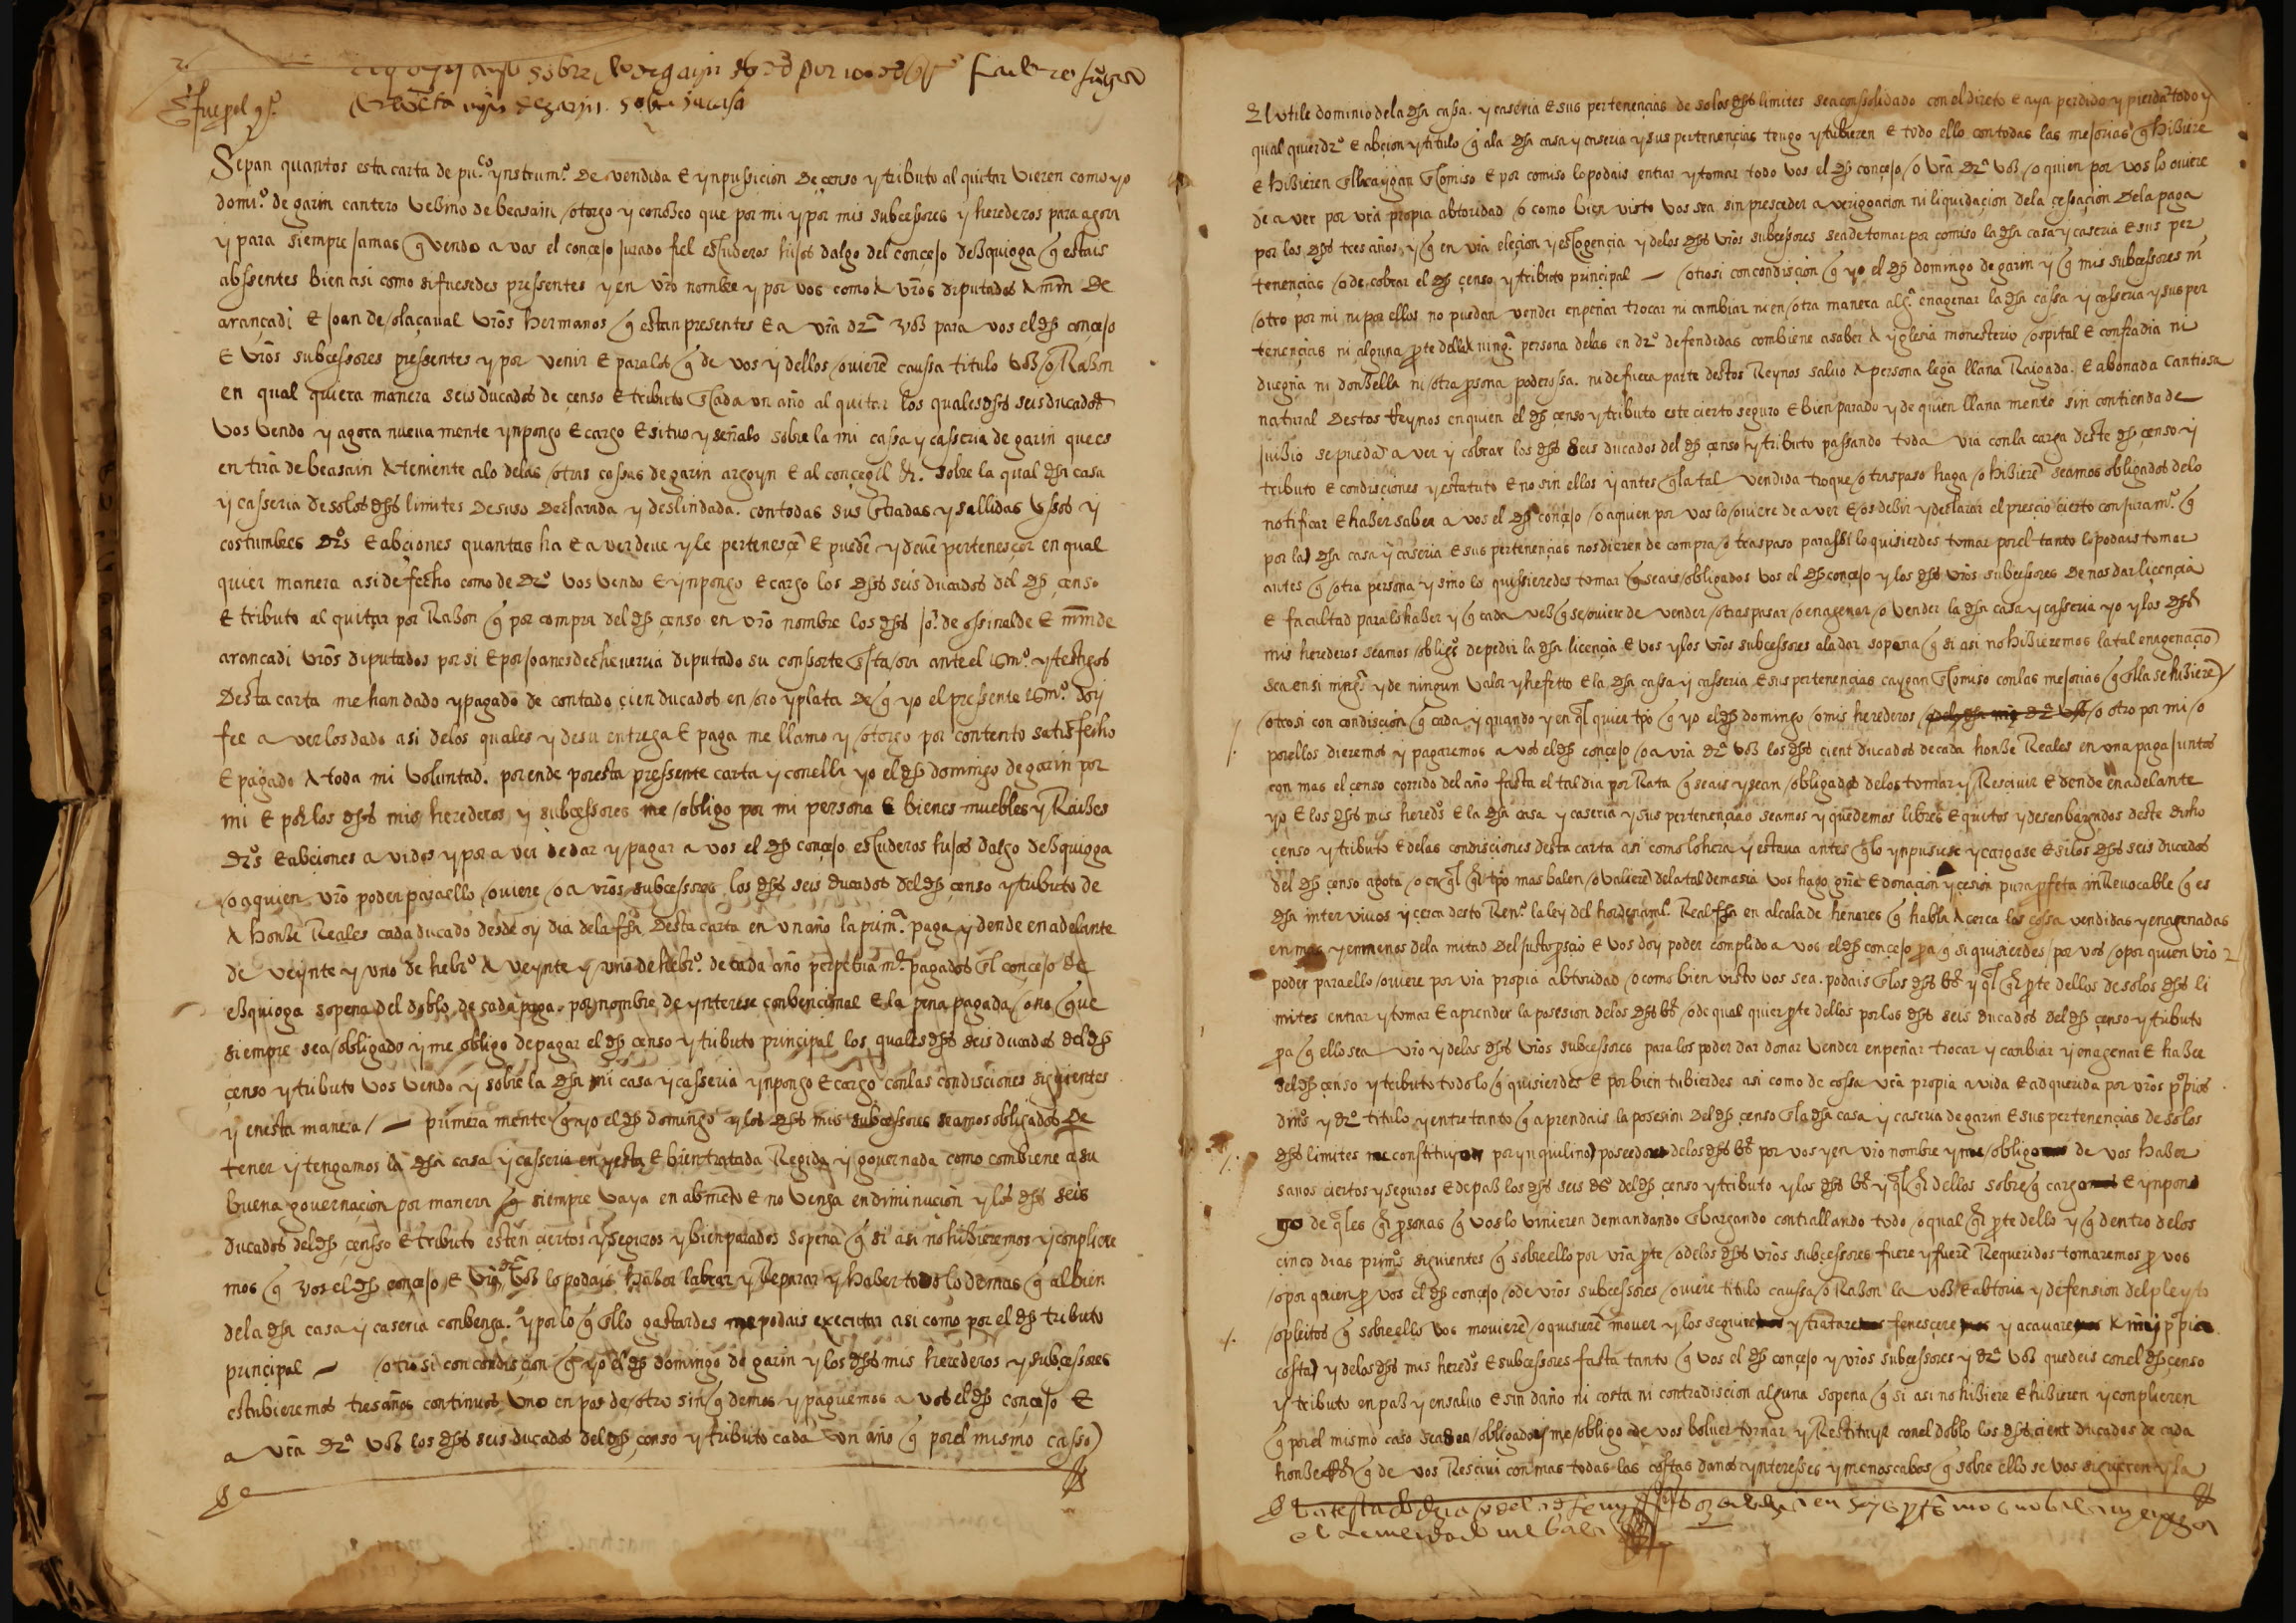 fue pel qº
Sepan quantos esta carta de puco ynstrumo de vendida e ynpussicion de çenso y tributo al quitar vieren como yo
domio de garin cantero vezino de beasain otorgo y conozco que por mi y por mis subcessores y herederos para agora
y para siempre jamas q vendo a vos el conçejo jurado fiel escuderos hijos dalgo del conçejo de ezquioga q estais
abssentes bien asi como si fuesedes pressentes y en vro nombre y por vos como a vros diputados a mrn de
arançadi e joan de olaçaual vros hermanos q estan presentes e a vra dra voz para vos el dho conçejo
e vros subcessores pressentes y por venir e para los q de vos y dellos ouiere caussa titulo voz o Razon
en qual quiera manera seis ducados de çenso e tributo en cada un año al quitar los quales dhos seis ducados
vos vendo y agora nueua mente ynpongo e cargo e situo y señalo sobre la mi cassa y casseria de garin que es
en trra de beasain ateniente a lo de las otras cassas de garin argoyn e al conçegil &. sobre la qual dha casa
y casseria de so los dhos limites de suso declarada y deslindada. con todas sus entradas y sallidas vssos y
costumbres dros e abçiones quantas ha e a ver deue y le pertenesçe e puede y deue pertenesçer en qual
quier manera asi de fecho como de dro vos vendo e ynpongo e cargo los dhos seis ducados del dho çenso
e tributo al quitar por Razon q por compra del dho çenso en vro nombre los dhos jo de ossinalde e mrn de
arancadi vros diputados por si e por joanes de echeuerria diputado su conssorte esta ora ante el esno y testigos
desta carta me han dado y pagado de contado çien ducados en oro y plata de q yo el pressente esno doy
fee a ver los dado asi de los quales y de su entrega e paga me llamo y otorgo por contento satisfecho
e pagado a toda mi voluntad. por ende por esta pressente carta y con ella yo el dho domingo de garin por
mi e por los dhos mis herederos y subcessores me obligo por mi persona e bienes muebles y Raizes
dros e abçiones a vidos y por a ver de dar y pagar a vos el dho conçejo escuderos hijos dalgo de ezquioga
o a quien vro poder para ello ouiere o a vros subcessores los dhos seis ducados del dho çenso y tributo de
a honze Reales cada ducado desde oy dia de la fha desta carta en un año la prima paga y dende en adelante
de veynte y uno de hebro a veynte y uno de hebro de cada año perpetua mte pagados en el conçejo de
ezquioga sopena del doblo de cada paga por nombre de ynterese conbençional e la pena pagada o no q que
siempre sea obligado y me obligo de pagar el dho çenso y tributo prinçipal los quales dhos seis ducados del dho
çenso y tributo vos vendo y sobre la dha mi casa y casseria ynpongo e cargo con las condisçiones siguientes
y en esta manera / — primera mente q yo el dho domingo y los dhos mis subcessores seamos obligados de
tener y tengamos la dha casa y casseria en yesta e bien tratada Regida y gouernada como combiene a su
buena gouernaçion por manera q siempre vaya en abmeto e no venga en diminuçion y los dhos seis
ducados del dho çensso e tributo esten ciertos y seguros y bien parados sopena q si asi no hizieremos y conpliere
mos q vos el dho conçejo e vra dra voz lo podais hazer labrar y Reparar y haber todo lo demas q al bien
de la dha casa y caseria conbenga. y por lo q en ello gastardes me podais executar asi como por el dho tributo
prinçipal — otro si con condisçion q yo el dho domingo de garin y los dhos mis herederos y subcessores
estubieremos tres años continuos uno en pos de otro sin q demos y paguemos a vos el dho conçejo e
a vra dra voz los dhos seis ducados del dho çenso y tributo cada un año q por el mismo casso
El vtile dominio de la dha cassa. y caseria e sus pertenençias de so los dhos limites sea conssolidado con el direto e aya perdido y pierda todo y
qual quier dro e abçion y titulo q a la dha casa y caseria y sus pertenençias tengo y tubieren e todo ello con todas las mejorias q hiziere
e hizieren en ella caygan en comiso e por comiso lo podais entrar y tomar todo vos el dho conçejo o vra dra voz o quien por vos lo ouiere
de a ver por vra propia abtoridad o como bien visto vos sea sin presceder a veriguacion ni liquidaçion de la çessaçion de la paga
por los dhos tres años y q en vra eleçion y escogençia y de los dhos vros subcessores sea de tomar por comiso la dha casa y caseria e sus per
tenençias o de cobrar el dho çenso y tributo prinçipal — otrosi con condisçion q yo el dho domingo de garin y q mis subcessores ni
otro por mi ni por ellos no puedan vender enpeñar trocar ni cambiar ni en otra manera alga enagenar la dha cassa y casseria y sus per
tenençias ni alguna pte della a ninga persona de las en dro defendidas combiene a saber a yglesia monesterio ospital e confradia ni
duegña ni donzella ni otra psona poderossa. ni de fuera parte destos Reynos saluo a persona lega llana Raigada. e abonada cantiosa
natural destos Reynos en quien el dho çenso y tributo este cierto seguro e bien parado y de quien llana mente sin contienda de
juizio se pueda a ver y cobrar los dhos seis ducados del dho çenso y tributo passando toda via con la carga deste dho çenso y
tributo e condisçiones y estatuto e no sin ellos y antes q la tal vendida troque o traspaso haga o hiziere seamos obligados de lo
notificar e haber saber a vos el dho conçejo o a quien por vos lo ouiere de a ver e os dezir y declarar el presçio cierto con juramo q
por la dha casa y caseria e sus pertenençias nos dieren de compra o traspaso para si lo quisierdes tomar por el tanto lo podais tomar
antes q otra persona y si no lo quissieredes tomar q seais obligados vos el dho conçejo y los dhos vros subcessores de nos dar licençia
e facultad para lo haber y q cada vez q se ouiere de vender o traspasar o enagenar o vender la dha casa y casseria yo y los dhos
mis herederos seamos obligos de pedir la dha licençia e vos y los vros subcessores a la dar sopena q si asi no hizieremos la tal enagenaçio
sea en si ninga y de ningun valor y hefetto e la dha cassa y casseria e sus pertenençias caygan en comiso con las mejorias q en ella se hiziere
otrosi con condisçion q cada y quando y en ql quier tpo q yo el dho domingo o mis herederos o otro por mi o
por ellos dieremos y pagaremos a vos el dho conçejo o a vra dra voz los dhos çient ducados de cada honze Reales en una paga juntos
con mas el censo corrido del año fasta el tal dia por Rata q seais y sean obligados de los tomar y Resçiuir e dende en adelante
yo e los dhos mis heredos e la dha casa y caseria y sus pertenençias seamos y quedemos libres e quitos y desenbargados deste dicho
çenso y tributo e de las condisçiones desta carta asi como lo hera y estaua antes q lo ynpusiese y cargase e si los dhos seis ducados
del dho çenso agora o en ql qr tpo mas balen o valiere de la tal demasia vos hago gra e donaçion y cesion pura pfeta inReuocable q es
dha inter viuos y cerca desto Reno la ley del hordenamto Real fha en alcala de henares q habla a cerca las cossa vendidas y enagenadas
en mas y en menos de la mitad del justo psçio e vos doy poder complido a vos el dho conçejo pa q si quisierdes por vos o por quien vro
poder para ello ouiere por vra propia abtoridad o como bien visto vos sea. podais en los dhos bs y ql qr pte dellos de so los dhos li
mites entrar y tomar e aprender la posesion de los dhos bs o de qual quier pte dellos por los dhos seis ducados del dho çenso y tributo
pa q ello sea vro y de las dhos vros subcessores para los poder dar donar vender enpeñar trocar y canbiar y enagenar e haber
del dho çenso y tributo todo lo q quisierdes e por bien tubierdes asi como de cossa vra propia a vida e adquerida por vros ppios
dinos y dro titulo y entre tanto q aprendais la posesion del dho çenso en la dha casa y caseria de garin e sus pertenençias de so los
dhos limites me constituyo por ynquilino poseedor de los dhos bs por vos y en vro nombre y me obligo de vos haber
sanos ciertos y seguros e de paz los dhos seis ds del dho çenso y tributo y los dhos bs y ql qr dellos sobre q cargo e ynpon
go de qles qr psonas q vos lo vinieren demandando enbargando contrallando todo o qual qr pte dello y q dentro de los
cinco dias primos siguientes q sobre ello por vra pte o de los dhos vros subcessores fuere y fuere Requeridos tomaremos por vos
o por quien por vos el dho conçejo o de vros subcessores ouiere titulo caussa o Razon la voz e abtoria y defension del pleyto
o pleitos q sobre ello vos mouiere o quisiere mouer y los seguire y tratare fenesçere y acauare a mi ppia
costa y de los dhos mis heredos e subcessores fasta tanto q vos el dho conçejo y vros subcessores y dra voz quedeis con el dho çenso
y tributo en paz y en saluo e sin daño ni costa ni contradisçion alguna sopena q si asi no hiziere e hizieren y conplieren
q por el mismo caso sea obligado y me obligo de vos boluer tornar y Restituyr con el doblo los dhos çient ducados de cada
honze Rs q de vos Resçiui con mas todas las costas danos ynteresses y menoscabos q sobre ello se vos siguieren y la